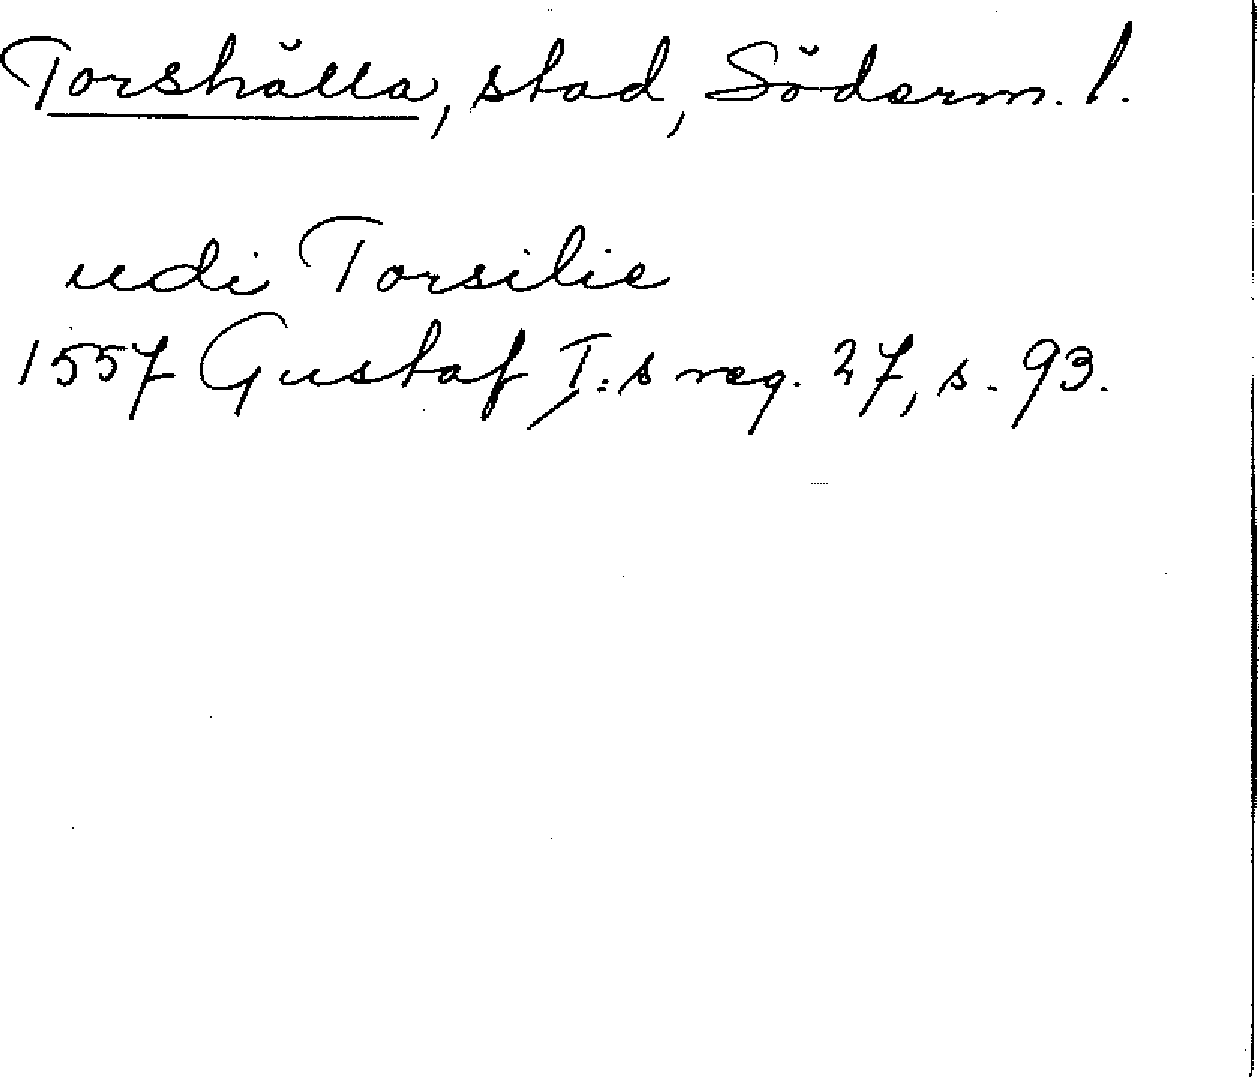 Torshälla, stad, Söderm. l.
udi Torsilie
1557 Gustaf I:s reg. 27, s. 93.